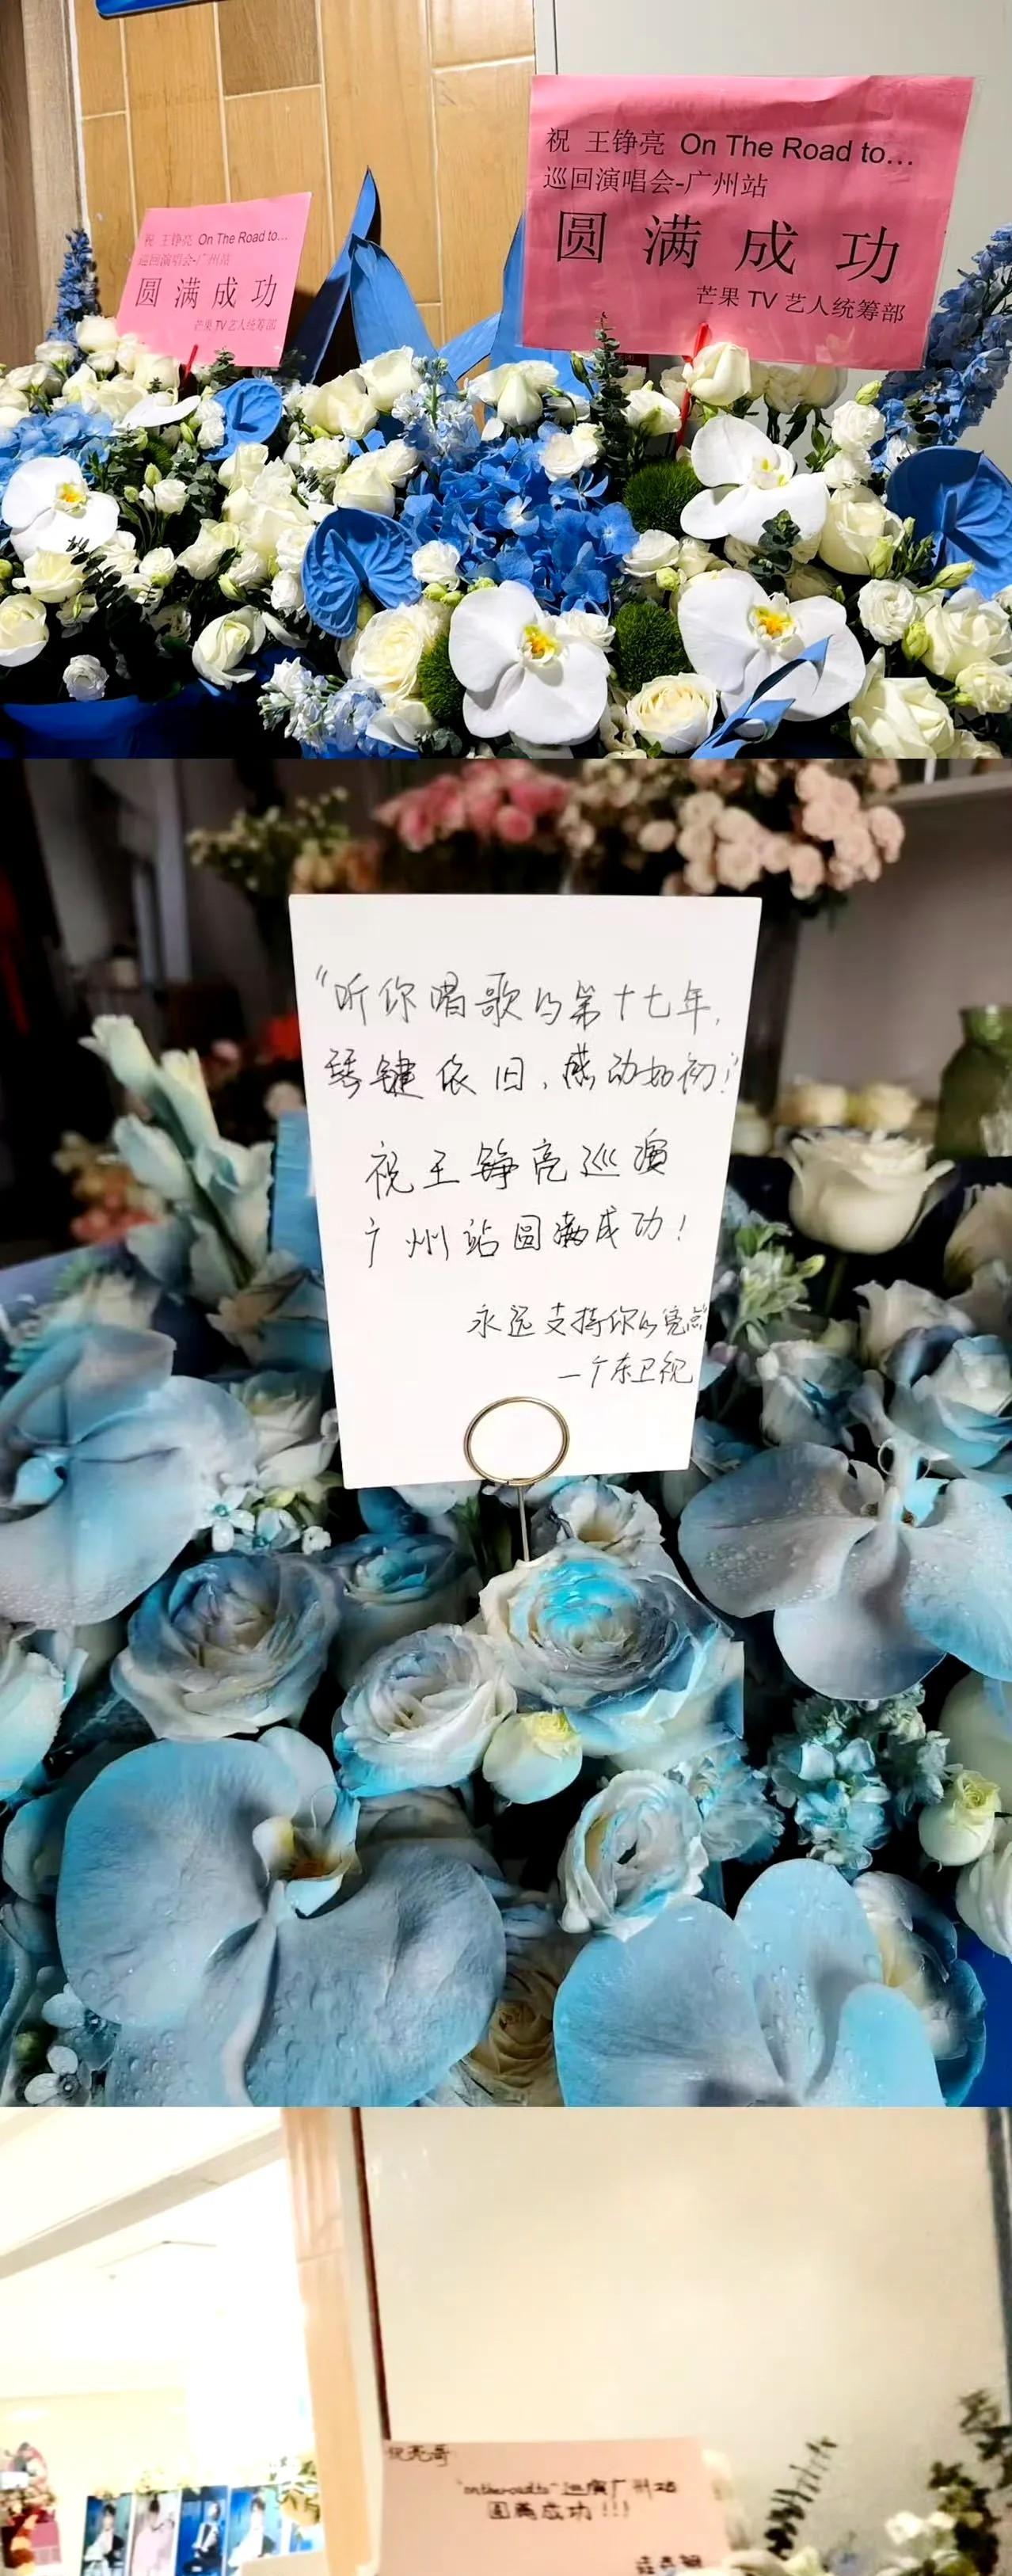 祝 王铮亮 On The Road to...
巡回演唱会-广州站
圆满成功
芒果TV艺人统筹部
祝 王铮亮 On The Road to...
巡回演唱会-广州站
圆 满 成 功
芒果 TV 艺人统筹部
“听你唱歌的第十七年,
琴键依旧,感动如初!”
祝王铮亮巡演
广州站圆满成功!
永远支持你的亮总
—广东卫视
祝亮哥
"on the road to" 巡演广州站
圆满成功!!!